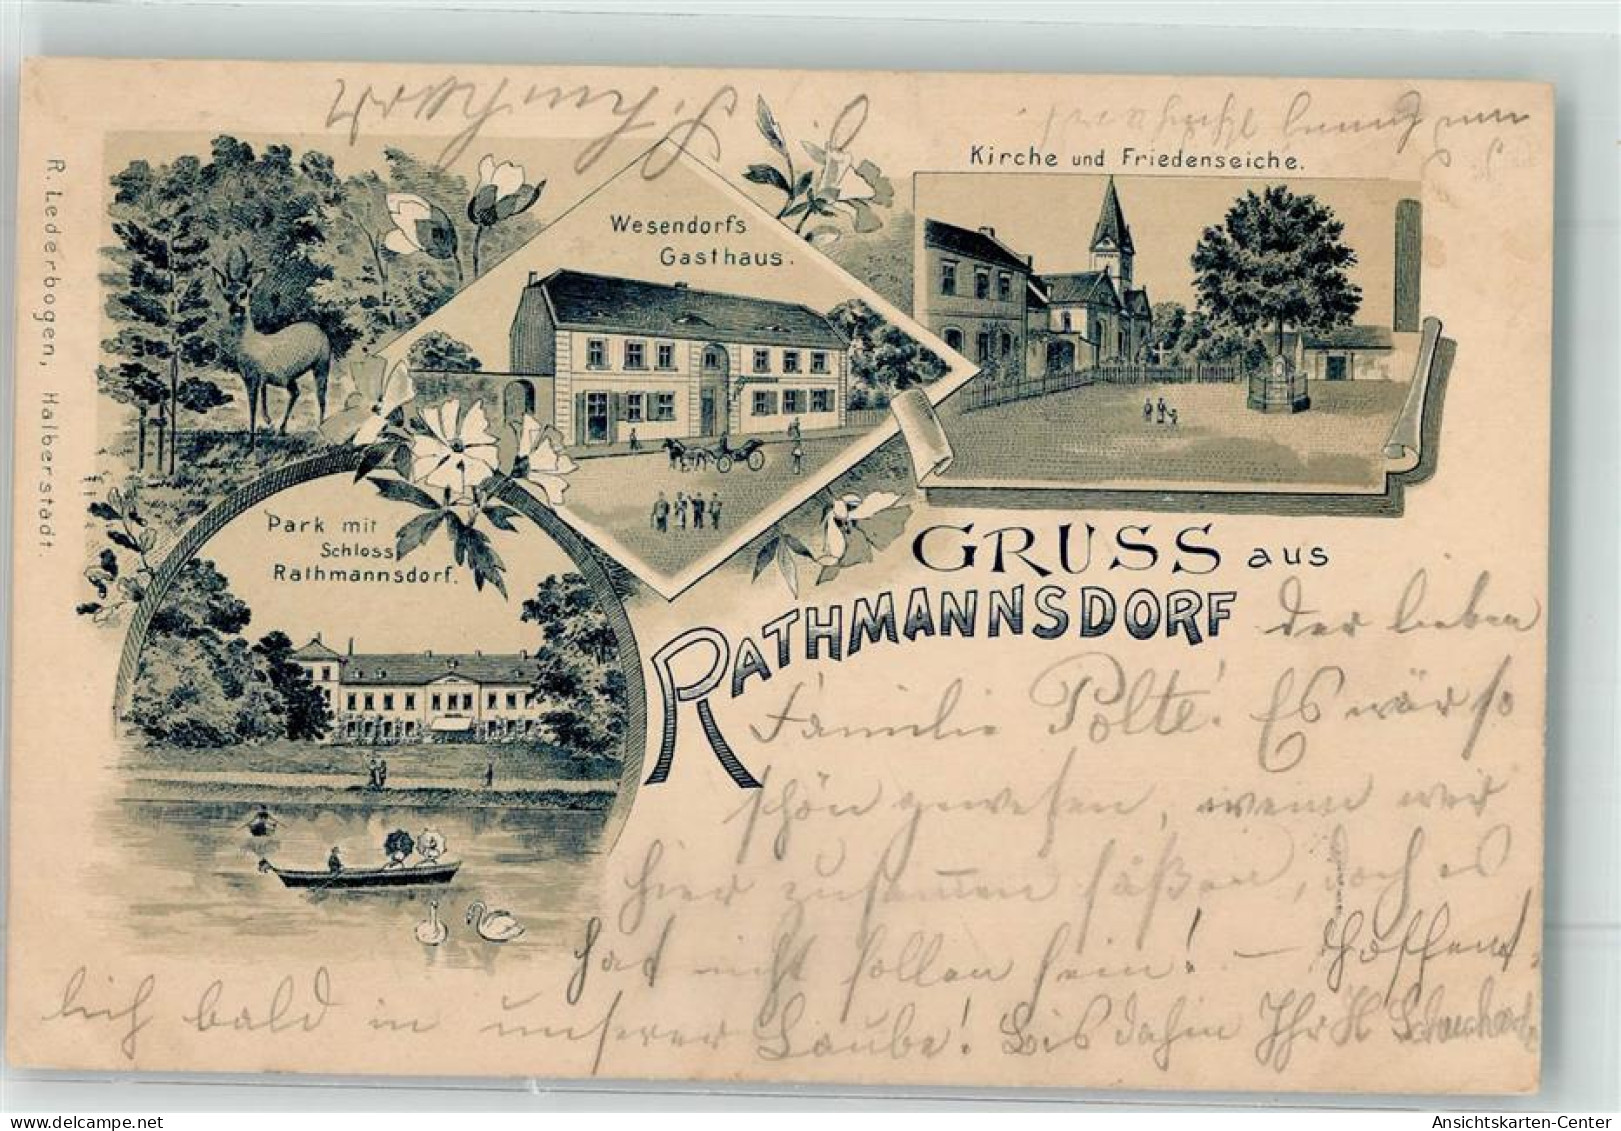 Kirche und Friedenseiche.
Wesendorfs
Gasthaus.
R. Lederbogen, Halberstadt.
Park mit
Schloss
Rathmannsdorf.
GRUSS aus
RATHMANNSDORF
der lieben
Familie Polte! Es wär so
schön gewesen, wenn wir
hier zusammen säßen, doch es
hat nicht sollen sein! – Hoffent-
lich bald in unserer Laube! Bis dahin Ihr H
Ansichtskarten-Center